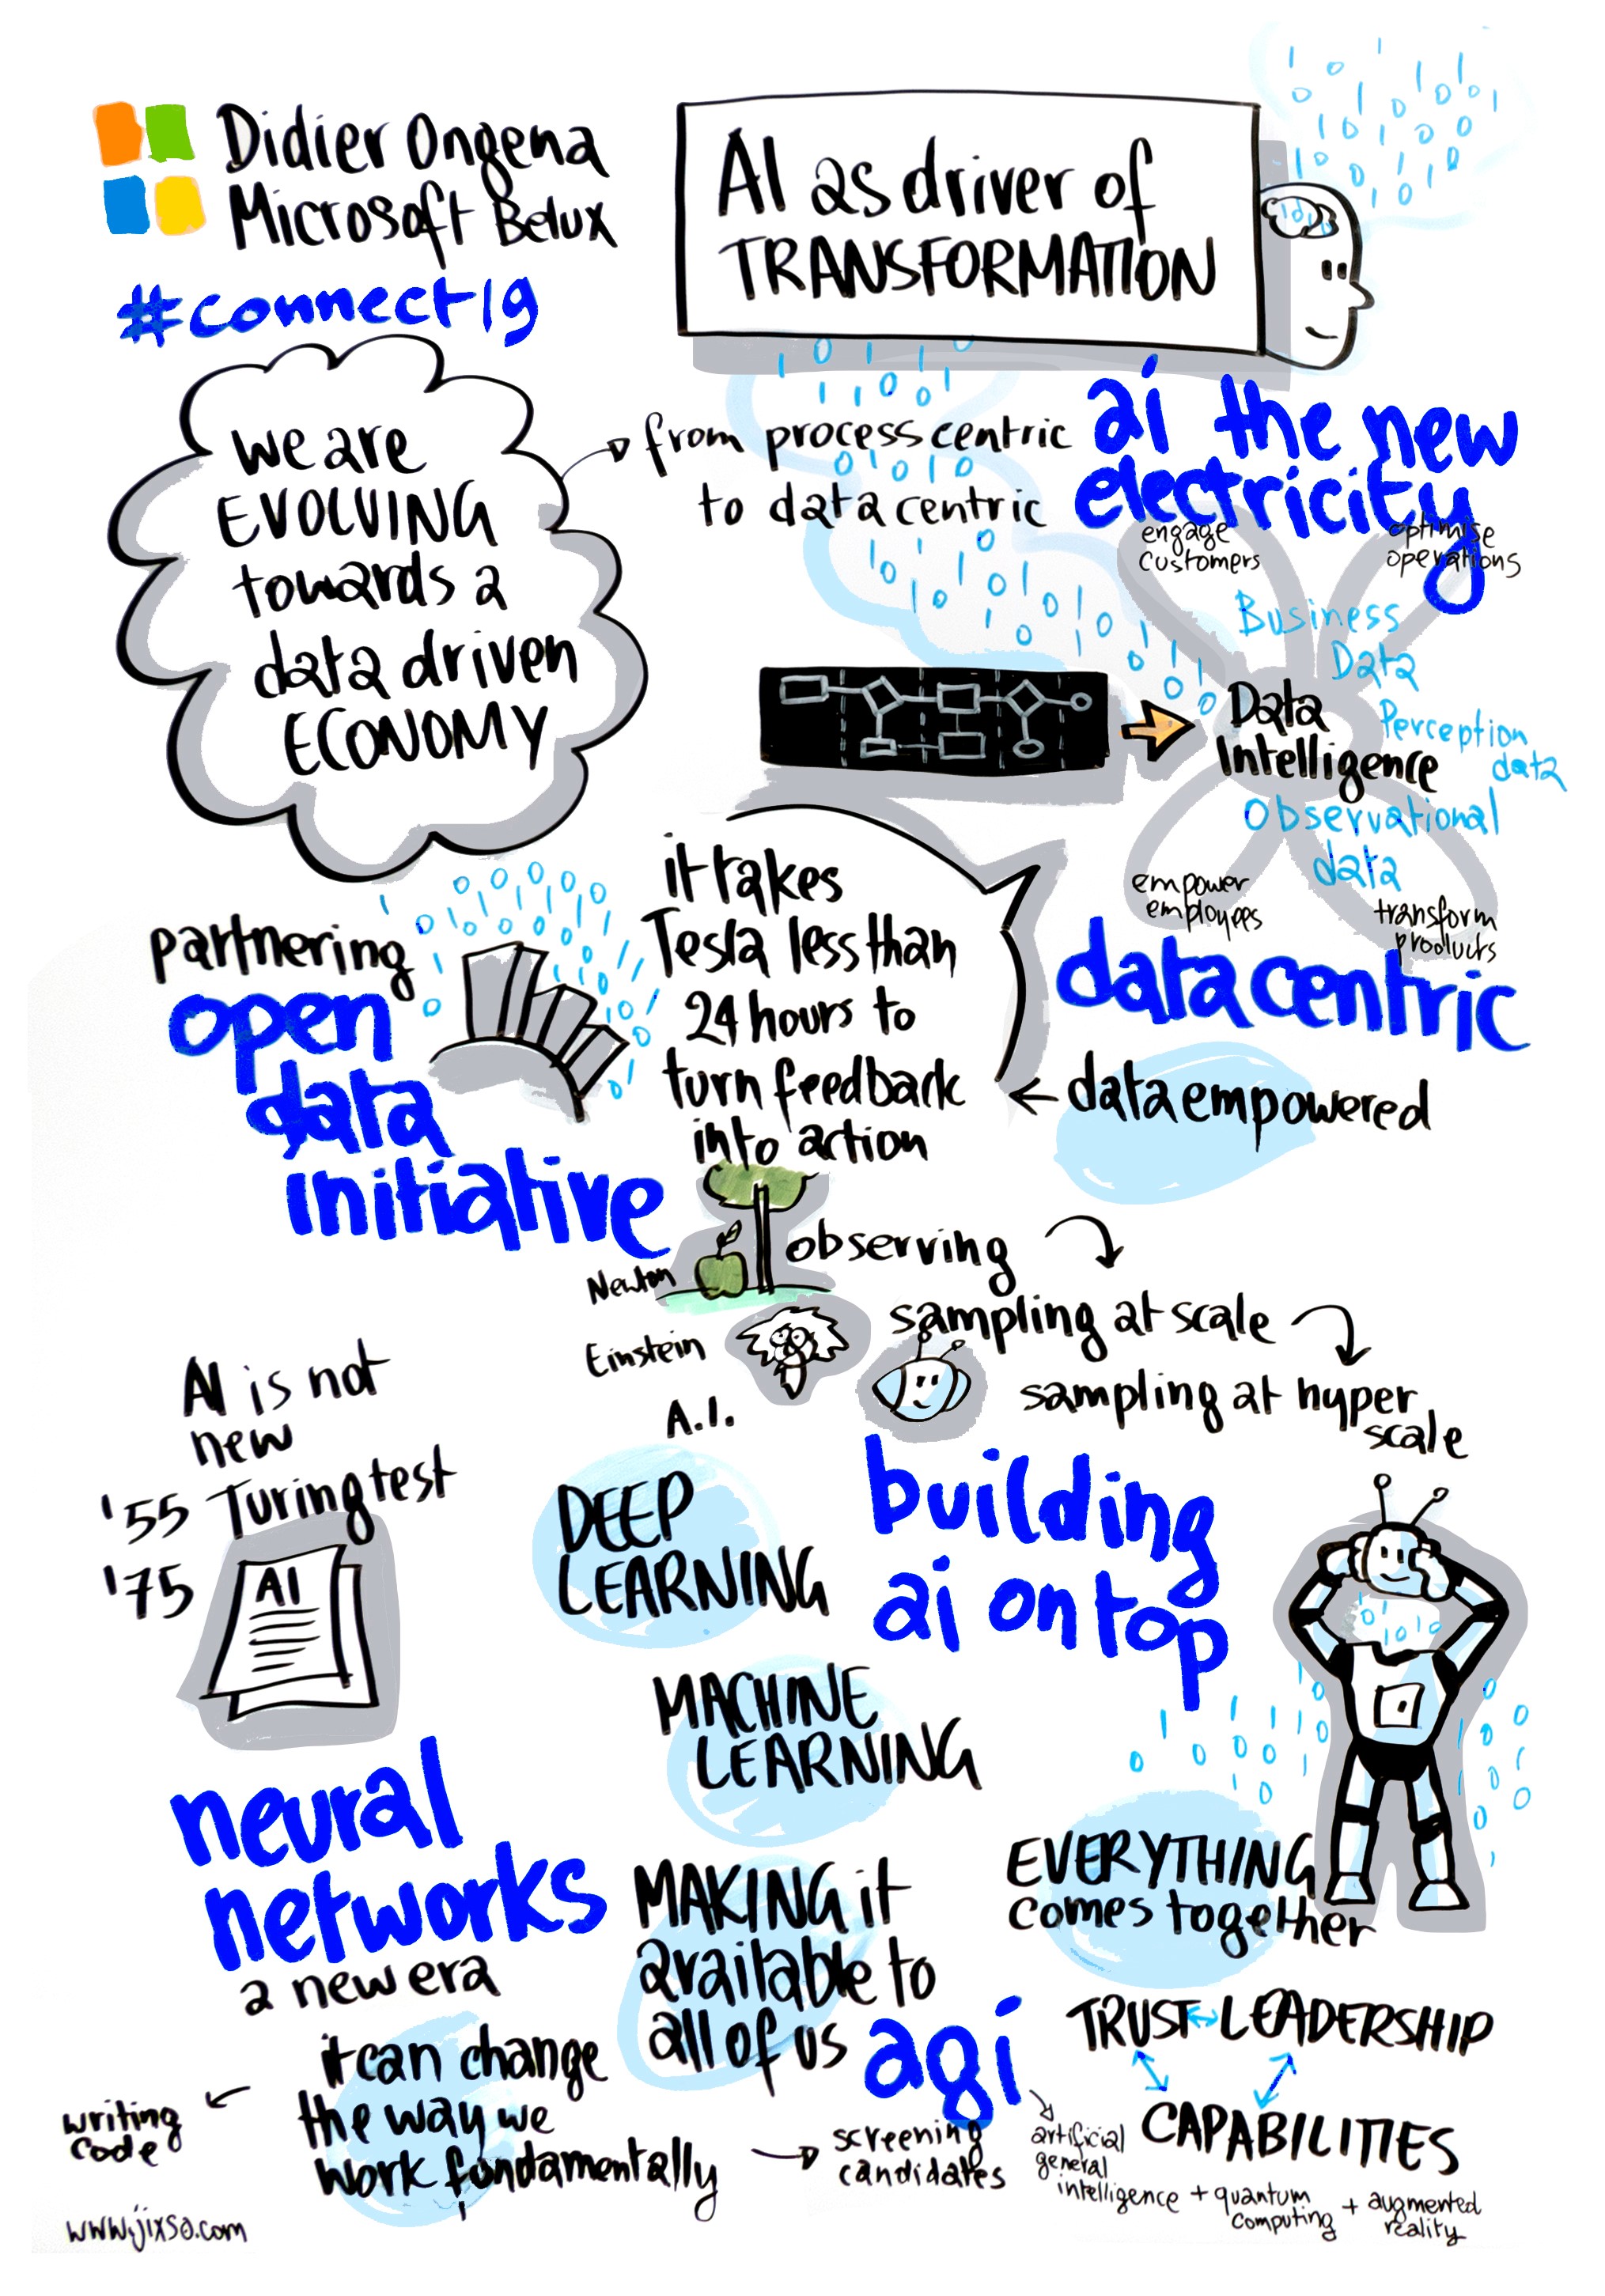 Didier Ongena
Microsoft Belux
#connect19
AI as driver of
TRANSFORMATION
we are
EVOLVING
towards a
data driven
ECONOMY
from process centric
to data centric
ai the new
electricity
engage
customers
optimise
operations
Business
Data
Perception
data
Data
Intelligence
Observational
data
empower
employees
transform
products
partnering
open
data
initiative
it takes
Tesla less than
24 hours to
turn feedback
into action
data centric
data empowered
Newton
observing
Einstein
sampling at scale
A.I.
sampling at hyper
scale
AI is not
new
'55 Turing test
'75
AI
DEEP
LEARNING
building
ai on top
MACHINE
LEARNING
neural
networks
a new era
MAKING it
available to
all of us
EVERYTHING
comes together
it can change
the way we
work fundamentally
writing
code
screening
candidates
agi
artificial
general
intelligence + quantum
computing + augmented
reality
TRUST LEADERSHIP
CAPABILITIES
www.jixso.com